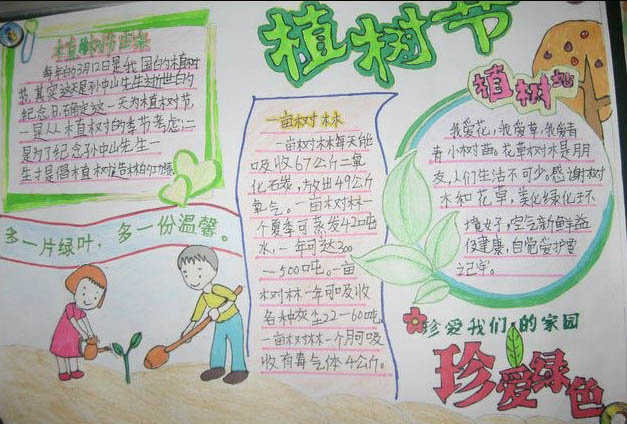 植树节
植树节由来
每年的3月12日是我国的植树
节,其实这天是孙中山先生逝世的
纪念日,确定这一天为植树节,
一是从植树的季节考虑;二
是为了纪念孙中山先生一
生才是倡植树造林的功绩
多一片绿叶,多一份温馨。
一亩树林
一亩树林每天能
吸收67公斤二氧
化石炭,放出49公斤
氧气。一亩树林一
个夏季可蒸发42吨
水,一年可达300
—500吨。一亩
树林一年可吸收
各种灰尘22—60吨
一亩树林一个月可吸
收有毒气体4公斤。
植树
我爱花,我爱草,我爱青
青小树苗。花草树木是朋
友,人们生活不可少。感谢树
木和花草,美化绿化环
境好,空气新鲜益
促健康,自觉爱护要
记牢。
珍爱我们的家园
珍爱绿色